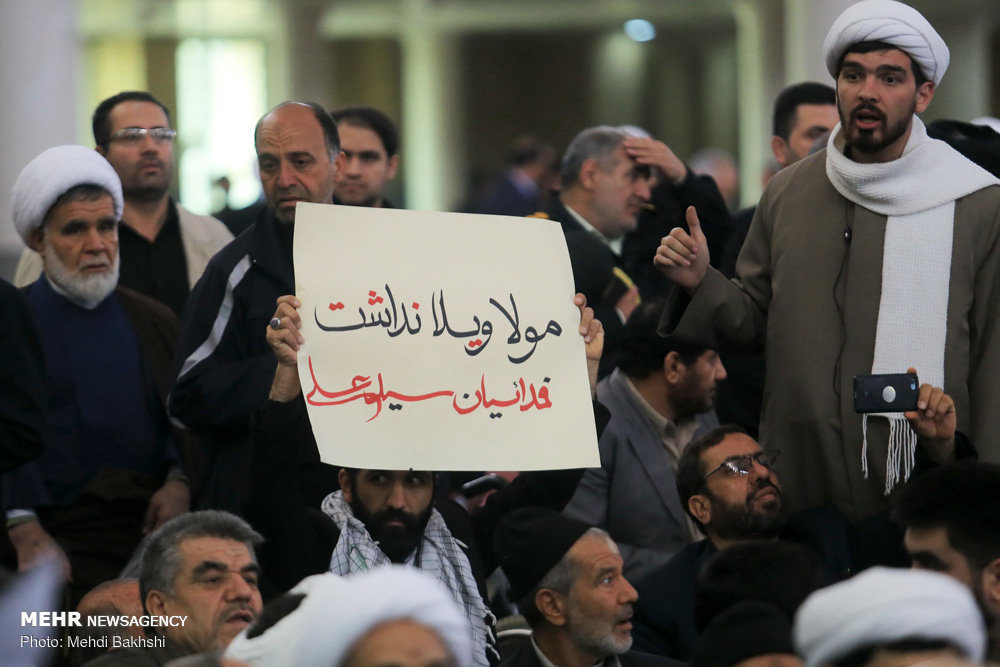 مولا ویلا نداشت
فدائیان سید علی
MEHR NEWSAGENCY
Photo: Mehdi Bakhshi